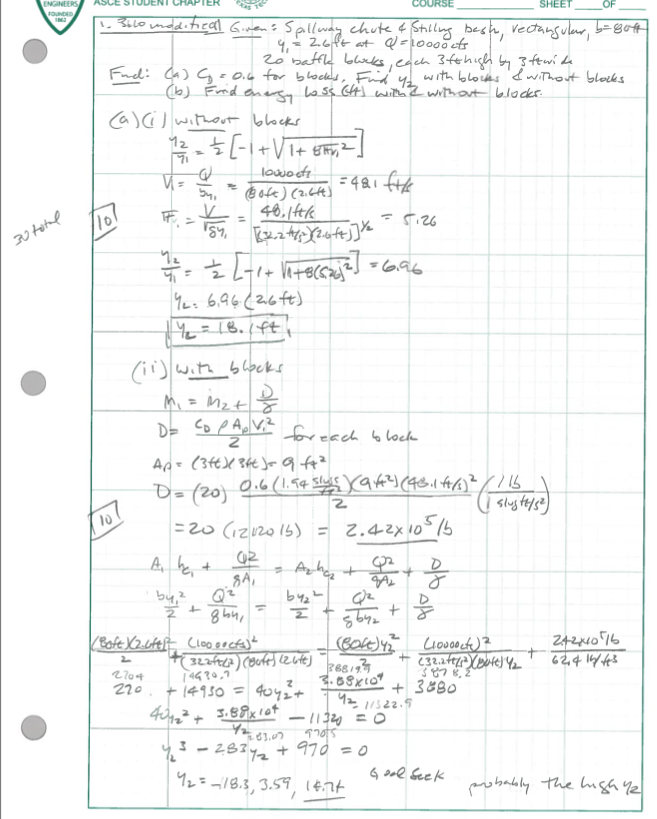 ENGINEERS
FOUNDED
1852
ASCE STUDENT CHAPTER
COURSE
SHEET OF
1. modified Given: Spillway chute & Stilling basin, rectangular, b=80ft
y₁ = 2.6ft at Q=10000cfs
20 baffle blocks, each 3ft high by 3ft wide
Find: (a) C_D = 0.6 for blocks, Find y₂ with blocks & without blocks
(b) Find energy loss (ft) with & without blocks.
(a)(i) without blocks
y₂/y₁ = 1/2 [-1 + √(1 + 8F₁²)]
V₁ = Q/by₁ = 10000cfs/(80ft)(2.6ft) = 48.1 ft/s
30 total
10
F₁ = V/√gy₁ = 48.1ft/s/[(32.2ft/s²)(2.6ft)]^1/2 = 5.26
y₂/y₁ = 1/2 [-1 + √(1+8(5.26)²] = 6.96
y₂ = 6.96 (2.6ft)
y₂ = 18.1 ft
(ii) with blocks
M₁ = M₂ + D/γ
D = C_D ρ A_p V₁²/2 for each block
A_p = (3ft)(3ft) = 9 ft²
D = (20) 0.6(1.94 slugs/ft³)(9ft²)(48.1ft/s)²/2 (1 lb/1 slug ft/s²)
10
= 20 (12120 lb) = 2.42x10⁵ lb
A₁ h_c₁ + Q²/gA₁ = A₂ h_c₂ + Q²/gA₂ + D/γ
by₁²/2 + Q²/gby₁ = by₂²/2 + Q²/gby₂ + D/γ
(80ft)(2.6ft)²/2 + (10000cfs)²/(32.2ft/s²)(80ft)(2.6ft) = (80ft)y₂²/2 + (10000ft)²/(32.2ft/s²)(80ft)y₂ + 2.42x10⁵ lb/62.4 lb/ft³
270. + 14930 = 40y₂² + 3.88x10⁴/y₂ + 3880
40y₂² + 3.88x10⁴/y₂ - 11320 = 0
y₂³ - 283y₂ + 970 = 0
y₂ = -18.3, 3.59, Goal Seek probably the high y₂